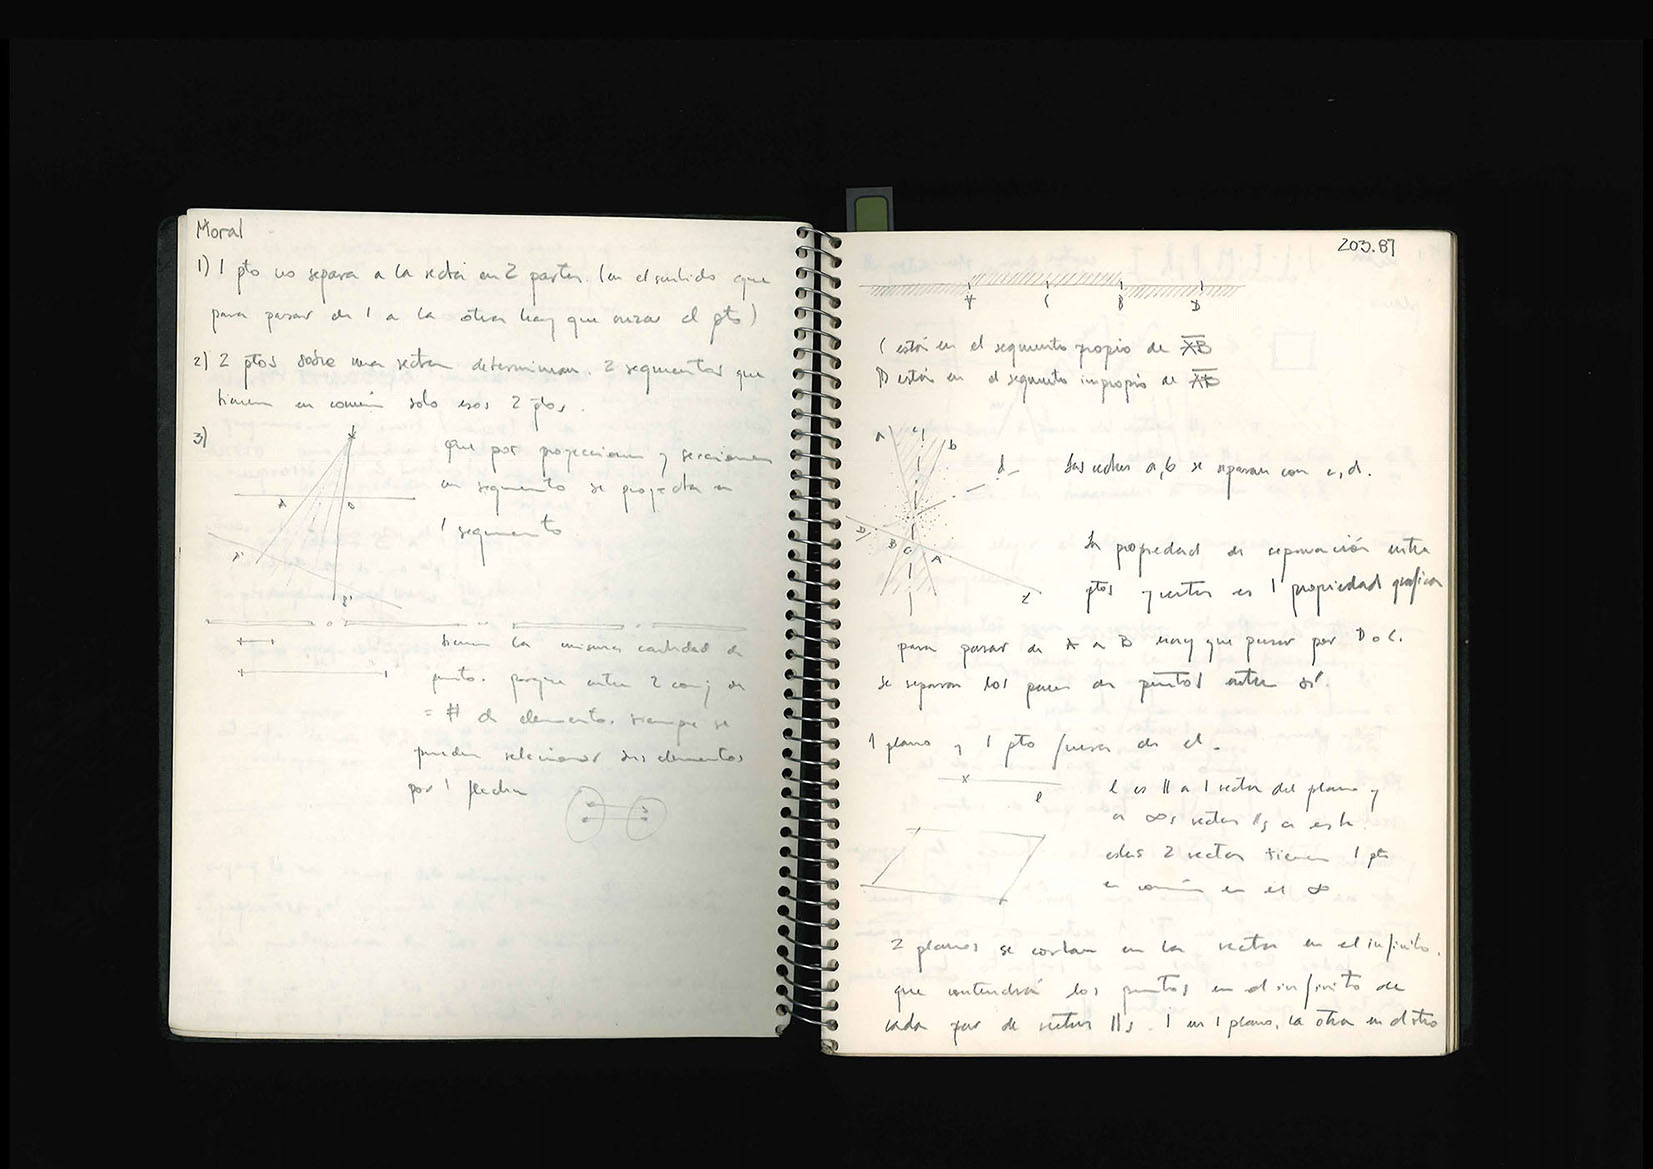 Moral
1) 1 pto no separa a la recta en 2 partes. (en el sentido que
para pasar de 1 a la otra hay que cruzar el pto)
2) 2 ptos sobre una recta determinan 2 segmentos que
tienen en comun solo esos 2 ptos.
3)
que por proyecciones y secciones
un segmento se proyecta en
1 segmento
A B
A' B'
tienen la misma cantidad de
puntos. porque entre 2 conj de
= # de elementos siempre se
pueden selecionar sus elementos
por 1 flecha
203.87
A C B D
C está en el segmento propio de AB
D está en el segmento impropio de AB
a c b
d
las rectas a,b se separan con c,d.
D B C A
r
la propiedad de separación entre
ptos y rectas es 1 propiedad grafica
para pasar de A a B hay que pasar por D o C.
se separan los pares de puntos entre sí.
1 plano y 1 pto fuera de el.
x
l
l es || a 1 recta del plano y
a ∞s rectas ||s a esta.
estas 2 rectas tienen 1 pto
en común en el ∞
2 planos se cortan en la recta en el infinito.
que contendrá los puntos en el infinito de
cada par de rectas ||s. 1 en 1 plano, la otra en el otro